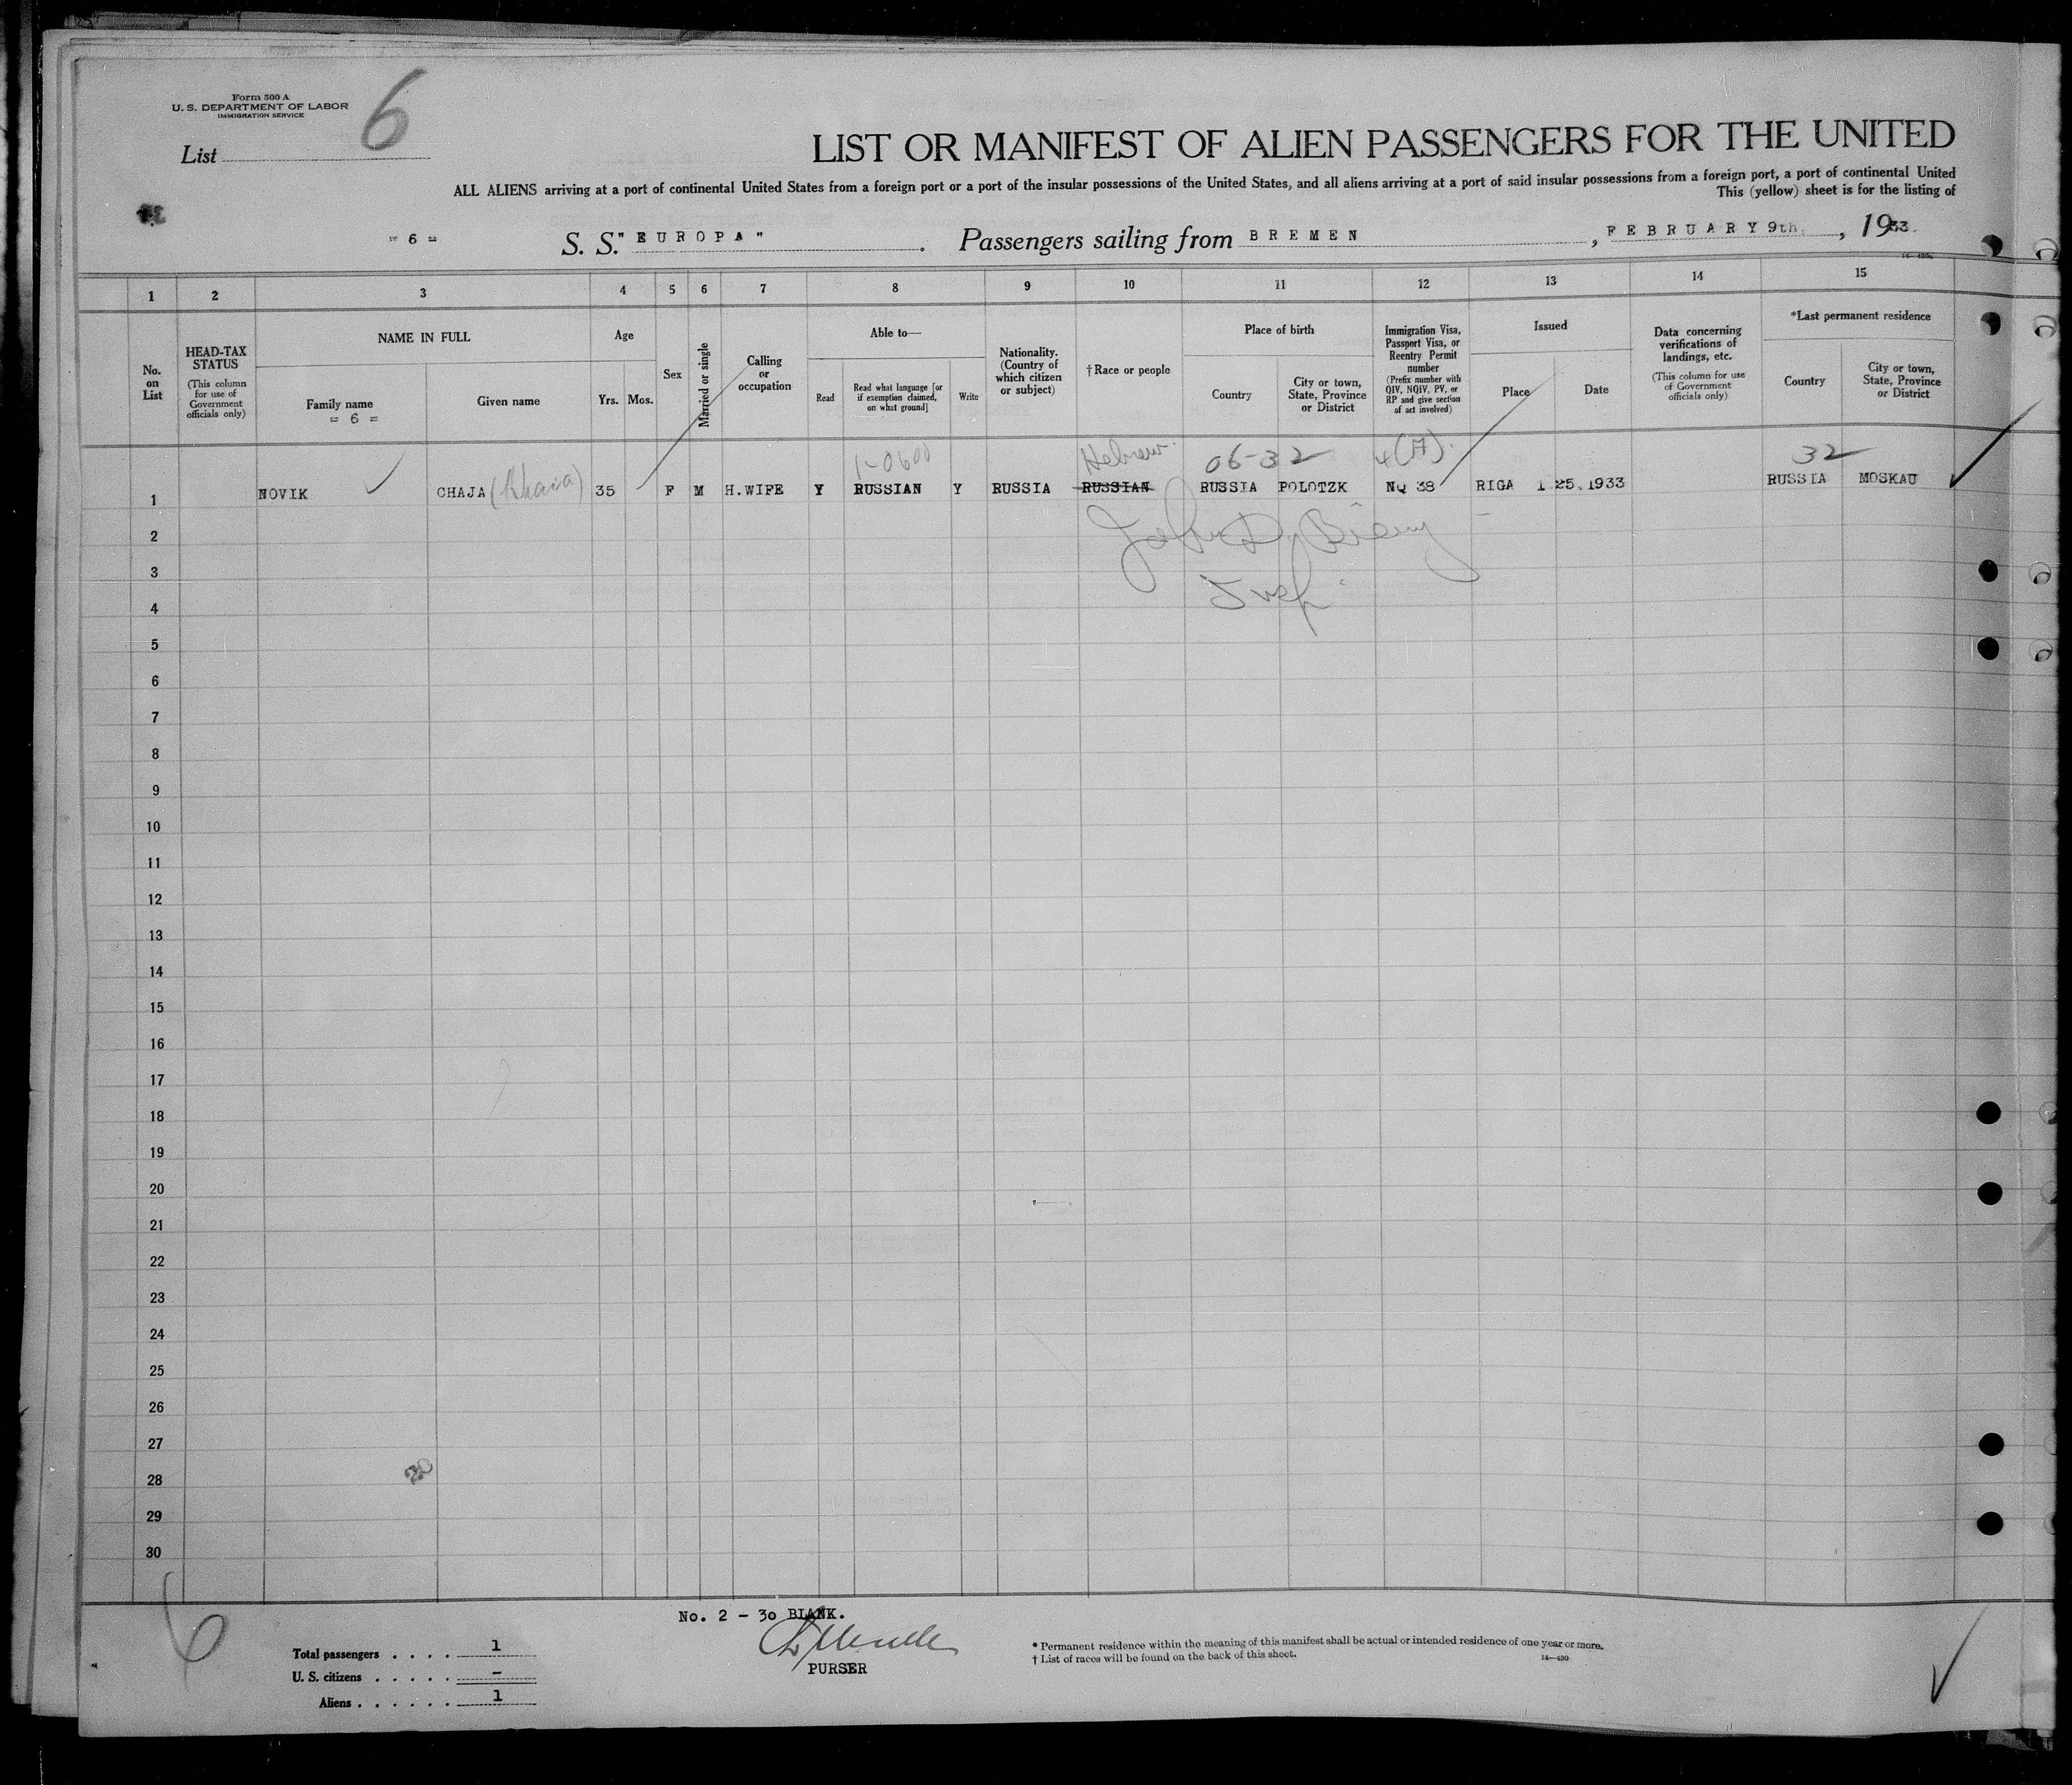 Form 500 A
U. S. DEPARTMENT OF LABOR
IMMIGRATION SERVICE
6
List
LIST OR MANIFEST OF ALIEN PASSENGERS FOR THE UNITED
ALL ALIENS arriving at a port of continental United States from a foreign port or a port of the insular possessions of the United States, and all aliens arriving at a port of said insular possessions from a foreign port, a port of continental United
This (yellow) sheet is for the listing of
= 6 = S. S. "EUROPA" . Passengers sailing from BREMEN , FEBRUARY 9th. , 1933.
1 2 3 4 5 6 7 8 9 10 11 12 13 14 15
No. on List
HEAD-TAX STATUS (This column for use of Government officials only)
NAME IN FULL
Family name
= 6 =
Given name
Age
Yrs. Mos.
Sex
Married or single
Calling or occupation
Able to—
Read
Read what language [or if exemption claimed, on what ground]
Write
Nationality. (Country of which citizen or subject)
†Race or people
Place of birth
Country
City or town, State, Province or District
Immigration Visa, Passport Visa, or Reentry Permit number (Prefix number with QIV, NQIV, PV, or RP and give section of act involved)
Issued
Place
Date
Data concerning verifications of landings, etc. (This column for use of Government officials only)
*Last permanent residence
Country
City or town, State, Province or District
Hebrew 06-32 4(A). 32
1 NOVIK CHAJA (Khaia) 35 F M H.WIFE Y RUSSIAN Y RUSSIA RUSSIAN RUSSIA POLOTZK NQ 38 RIGA 1 25.1933 RUSSIA MOSKAU
2
3
4
5
6
7
8
9
10
11
12
13
14
15
16
17
18
19
20
21
22
23
24
25
26
27
20
28
29
30
6
No. 2 - 30 BLANK.
PURSER
Total passengers . . . . 1
U. S. citizens . . . . . -
Aliens . . . . . . 1
* Permanent residence within the meaning of this manifest shall be actual or intended residence of one year or more.
† List of races will be found on the back of this sheet.
14—430